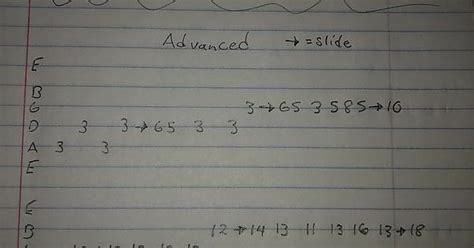 Advanced → = slide
E
B
G 3→65 3 585→16
D 3 3→65 3 3
A 3 3
E
E
B 12→14 13 11 13 16 13→18